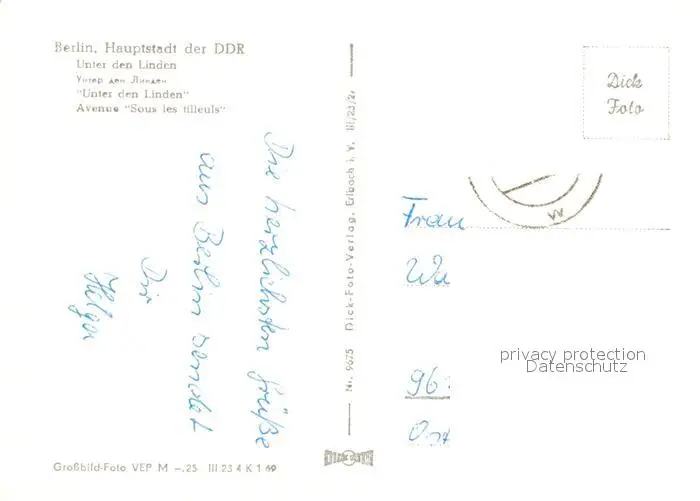 Berlin, Hauptstadt der DDR
Unter den Linden
Унтер ден Линден
"Unter den Linden"
Avenue "Sous les tilleuls"
Die herzlichsten Grüße
aus Berlin sendet
Dir
Helga
Nr. 9675 Dick-Foto-Verlag, Erlbach i. V. III/23/2
Dick
Foto
Frau
Wa
96
privacy protection
Datenschutz
Großbild-Foto VEP M -.25 III 23 4 K 1 69